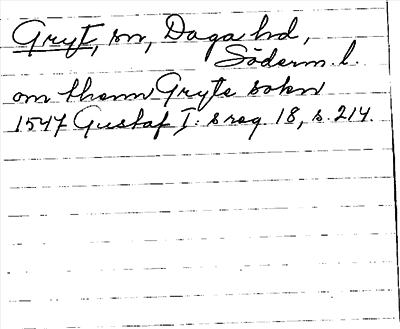 Gryt, sn, Daga hd,
Söderm. l.
om thenn Gryte sokn
1547 Gustaf I: s reg. 18, s. 214.